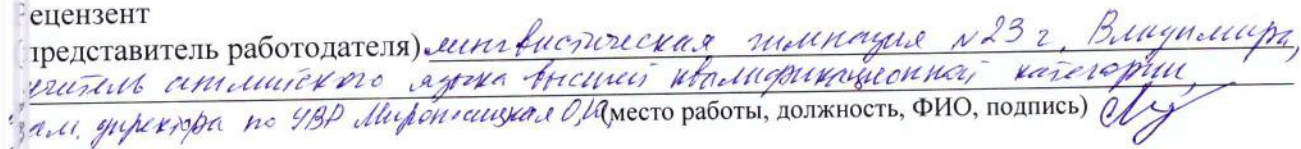 ецензент
представитель работодателя) лингвистическая гимназия №23 г. Владимира,
учитель английского языка высшей квалификационной категории,
зам. директора по УВР Мироносицкая О.Ю. (место работы, должность, ФИО, подпись)